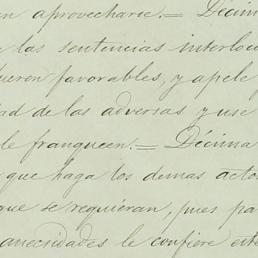 en aprovecharse.= Décim
e las sentencias interloc
fueren favorables, y apele
dad de las adversas y use
le franqueen.= Décima
que haga los demas acto
que se requieran, pues pa
anecsidades le confiere este